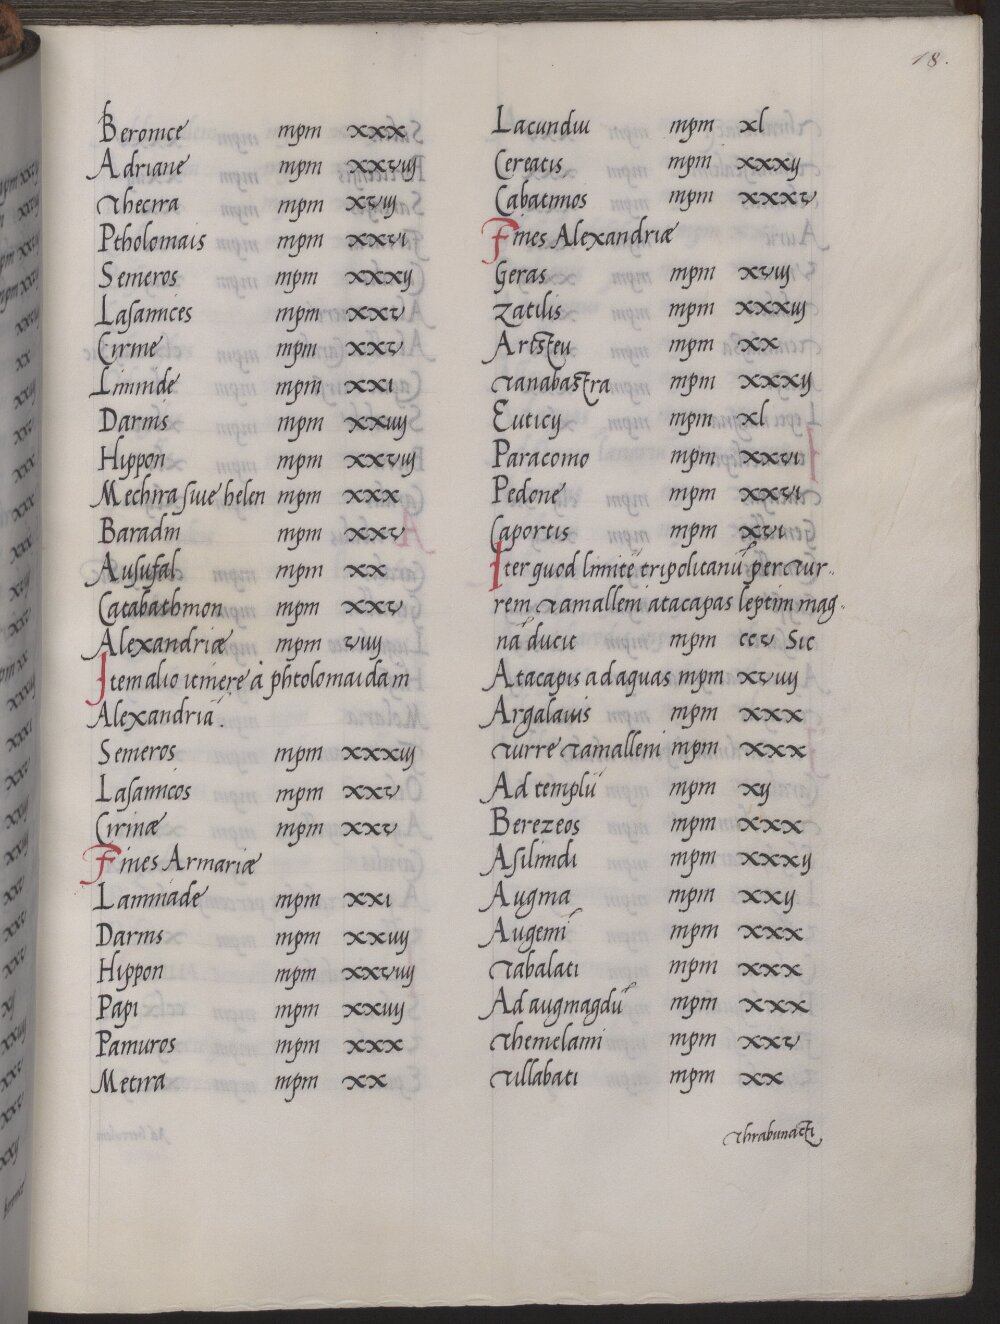 18.
Beronice mpm xxx
Adriane mpm xxviij
Thecira mpm xviij
Ptholomais mpm xxvi
Semeros mpm xxxij
Lasamices mpm xxv
Cirine mpm xxv
Limnide mpm xxi
Darnis mpm xxiiij
Hippon mpm xxviij
Mechira siue helen mpm xxx
Baradin mpm xxv
Ausufal mpm xx
Catabathmon mpm xxv
Alexandriæ mpm viiij
Item alio itinere à phtolomaidam
Alexandriā.
Semeros mpm xxxiij
Lasamicos mpm xxv
Cirinæ mpm xxv
Fines Armariæ
Lamniade mpm xxi
Darnis mpm xxiiij
Hippon mpm xxviiij
Papi mpm xxiiij
Pamuros mpm xxx
Metira mpm xx
Lacundiu mpm xl
Cereatis mpm xxxij
Cabatinos mpm xxxv
Fines Alexandriæ
Geras mpm xviij
Zatilis mpm xxxiij
Artsteu mpm xx
Tanabastra mpm xxxij
Euticij mpm xl
Paracomo mpm xxvi
Pedone mpm xxvi
Caportis mpm xvi
Iter quod limitē tripolitanū per Tur-
rem Tamalleni atacapas leptim mag-
nā ducit mpm ccv Sic
Atacapis ad aquas mpm xviiij
Argalauis mpm xxx
Turre Tamalleni mpm xxx
Ad templū mpm xij
Berezeos mpm xxx
Asilindi mpm xxxij
Augma mpm xxij
Augemī mpm xxx
Tabalati mpm xxx
Ad augmagdū mpm xxx
Themelami mpm xxv
Tillabati mpm xx
Thrabunacti